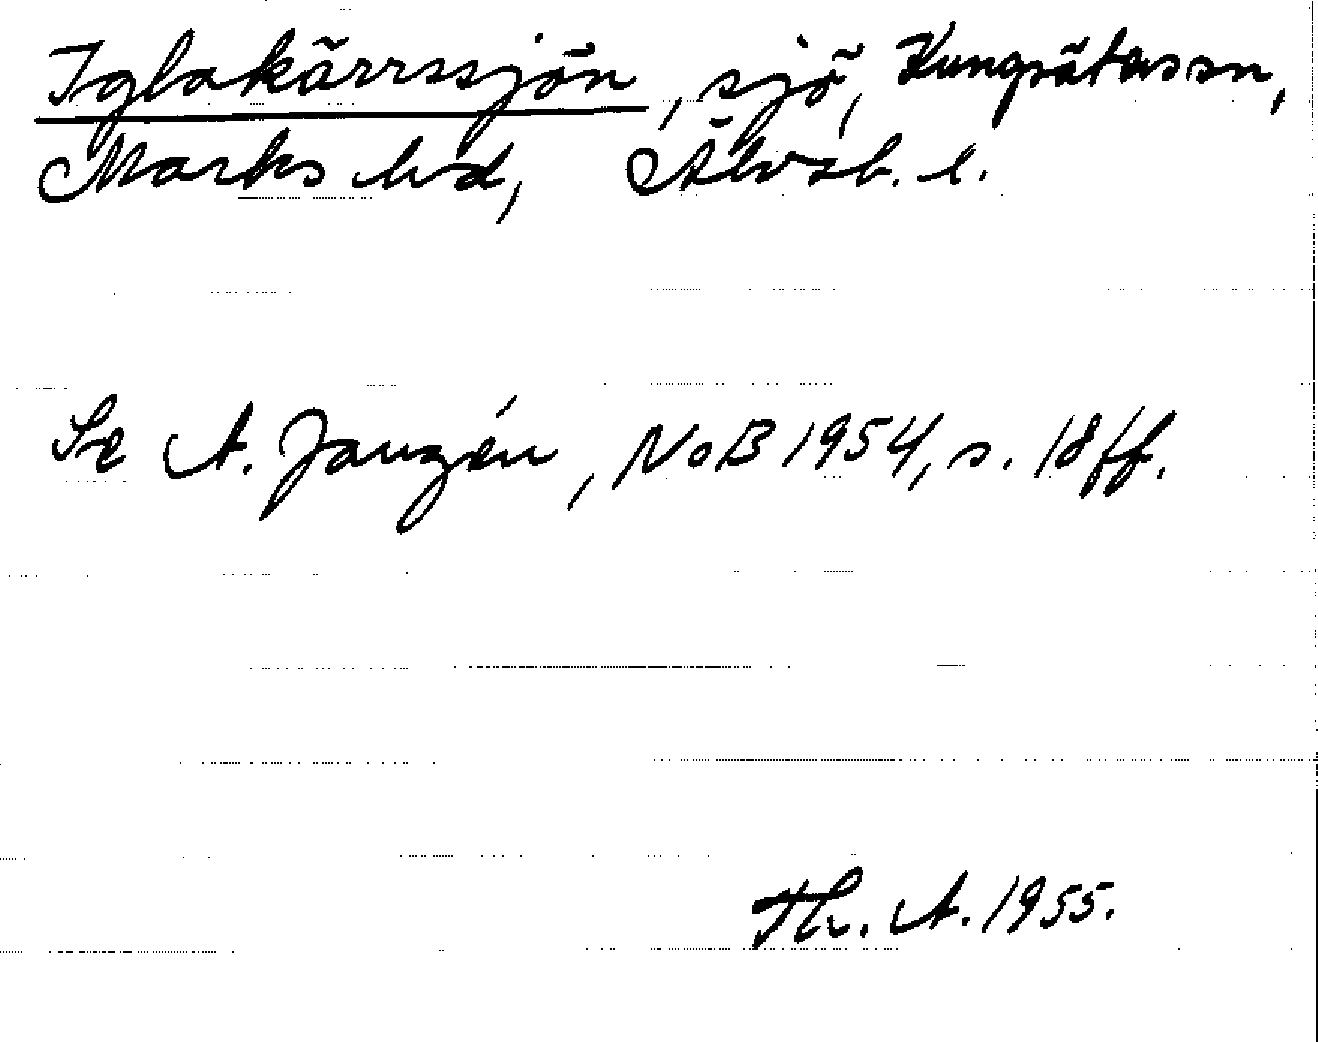 Iglakärrssjön, sjö, Kungsäters sn,
Marks hd, Älvsb. l.
Se A. Janzén, NoB 1954, s. 18 ff.
Th. A. 1955.